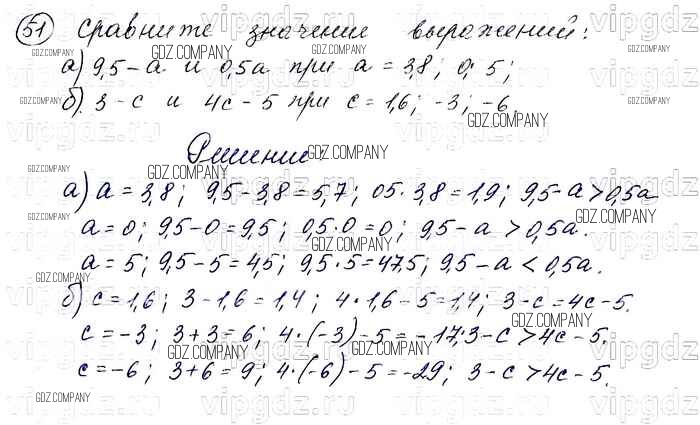 51 Сравните значение выражений:
а) 9,5 - а и 0,5а при а = 3,8; 0; 5;
б). 3 - с и 4с - 5 при с = 1,6; -3; -6.
Решение:
а) а = 3,8; 9,5 - 3,8 = 5,7; 05 · 3,8 = 1,9; 9,5 - а > 0,5а
а = 0; 9,5 - 0 = 9,5; 0,5 · 0 = 0; 9,5 - а > 0,5а.
а = 5; 9,5 - 5 = 4,5; 9,5 · 5 = 47,5; 9,5 - а < 0,5а.
б) с = 1,6; 3 - 1,6 = 1,4; 4 · 1,6 - 5 = 1,4; 3 - с = 4с - 5.
с = -3; 3 + 3 = 6; 4 · (-3) - 5 = -17; 3 - с > 4с - 5.
с = -6; 3 + 6 = 9; 4 · (-6) - 5 = -29; 3 - с > 4с - 5.
GDZ.COMPANY
vipgdz.ru